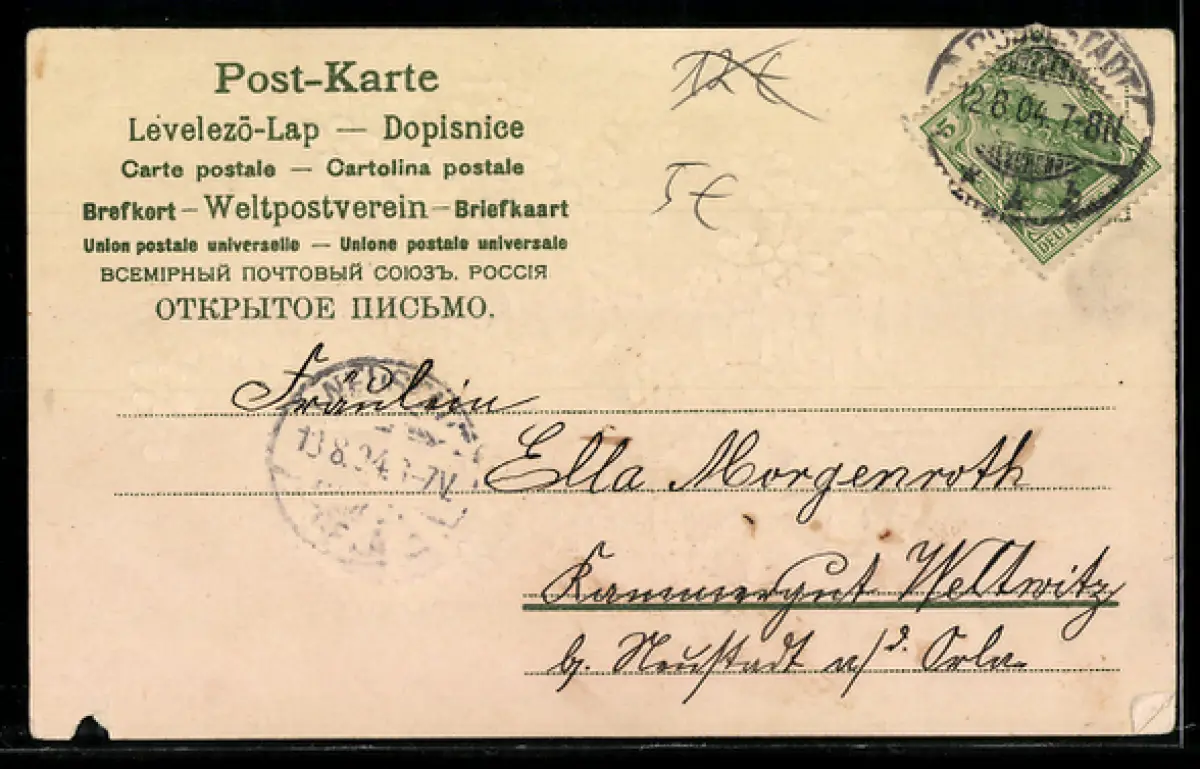 Post-Karte
Levelező-Lap — Dopisnice
Carte postale — Cartolina postale
Brefkort – Weltpostverein – Briefkaart
Union postale universelle — Unione postale universale
ВСЕМІРНЫЙ ПОЧТОВЫЙ СОЮЗЪ. РОССІЯ
ОТКРЫТОЕ ПИСЬМО.
12 €
5 €
12.8.04. 7-8N
5
DEUTS
13.8.04. -7V.
Fräulein
Ella Morgenroth
Kammergut Weltwitz
b. Neustadt a/d. Orla.